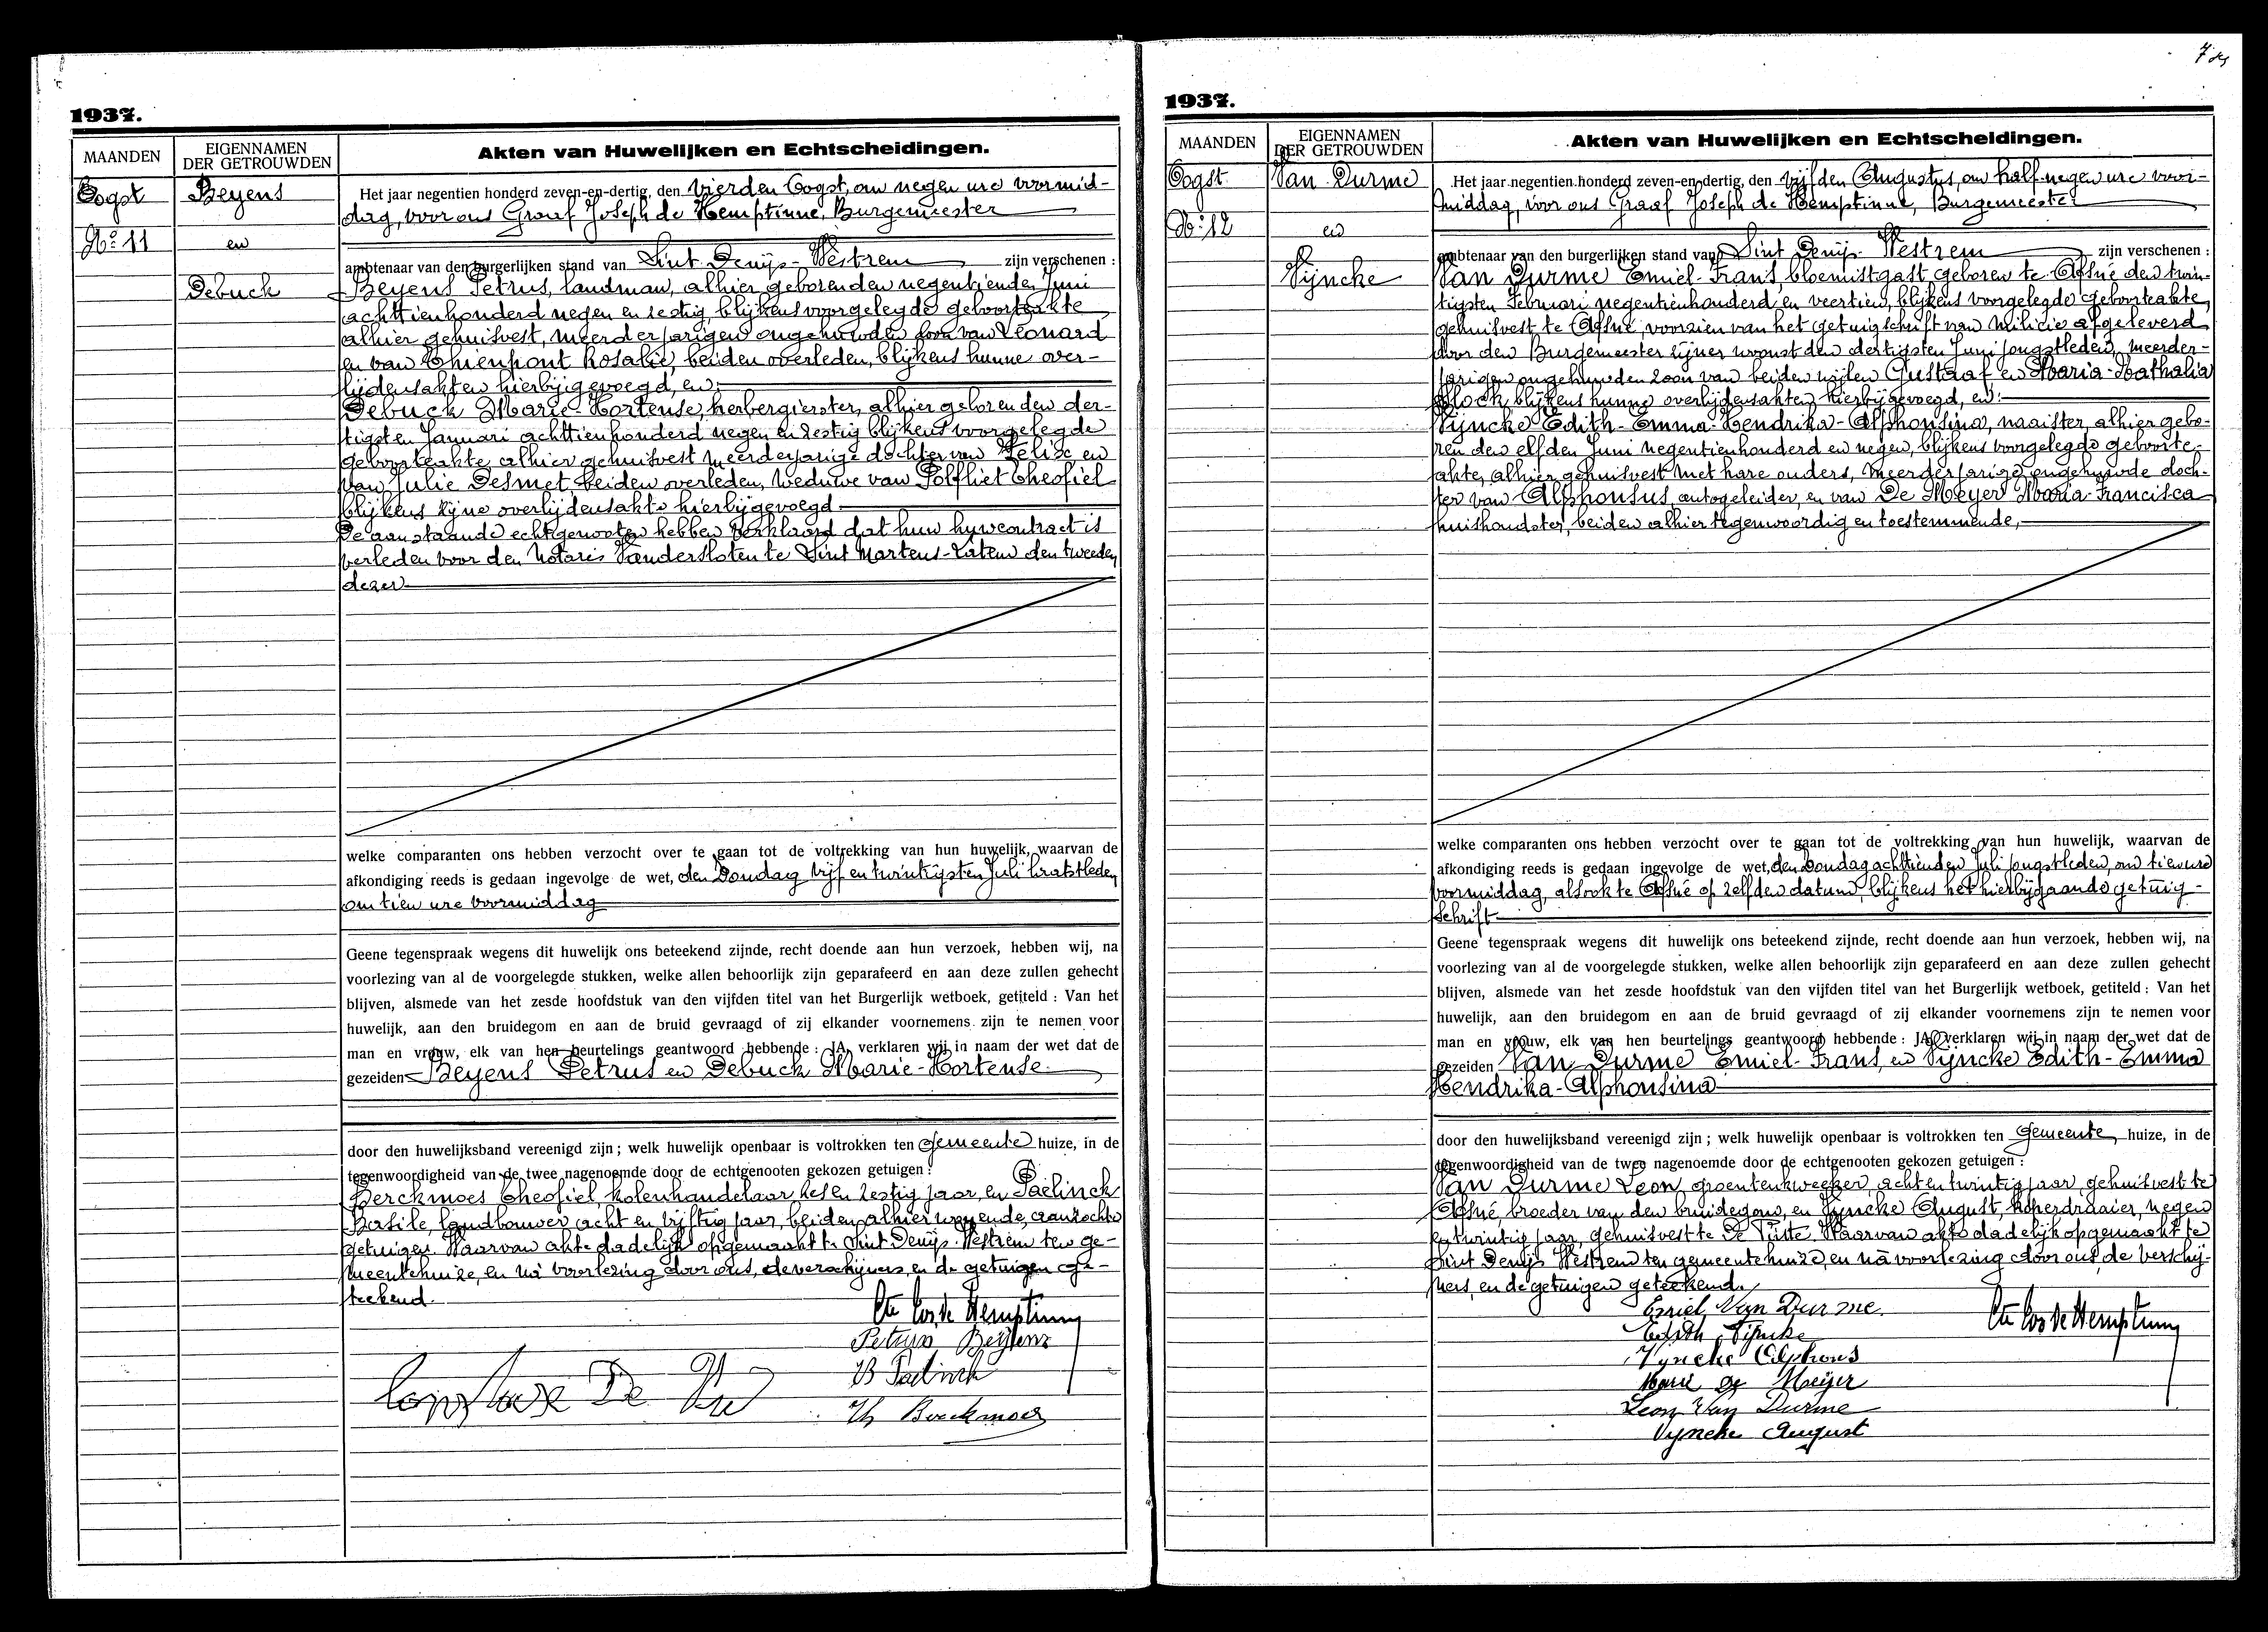 1937.
MAANDEN
EIGENNAMEN
DER GETROUWDEN
Akten van Huwelijken en Echtscheidingen.
Oogst
Nº 11
Beyens
en
Debuck
Het jaar negentien honderd zeven-en-dertig, den vierden Oogst, om negen ure voormid-
dag, voor ons Graaf Joseph de Hemptinne, Burgemeester
ambtenaar van den burgerlijken stand van Sint Denijs-Westrem zijn verschenen :
Beyens Petrus, landman, alhier geboren den negentienden Juni
achttienhonderd negen en zestig, blijkens voorgelegde geboorteakte
alhier gehuisvest, meerderjarigen ongehuwden zoon van Leonard
en van Thienpont Rosalie, beiden overleden, blijkens hunne over-
lijdensakten hierbijgevoegd, en:
Debuck Marie-Hortense, herbergierster, alhier geboren den der-
tigsten Januari achttienhonderd negen en zestig blijkens voorgelegde
geboorteakte, alhier gehuisvest meerderjarige dochter van Felix en
van Julie Desmet, beiden overleden, weduwe van Polfliet Theofiel
blijkens zijne overlijdensakte hierbijgevoegd
De aanstaande echtgenooten hebben verklaard dat hun huwcontract is
verleden voor den Notaris Vandersloten te Sint Martens-Latem den tweeden
dezer
welke comparanten ons hebben verzocht over te gaan tot de voltrekking van hun huwelijk, waarvan de
afkondiging reeds is gedaan ingevolge de wet, den Zondag vijf en twintigsten Juli laatstleden
om tien ure voormiddag
Geene tegenspraak wegens dit huwelijk ons beteekend zijnde, recht doende aan hun verzoek, hebben wij, na
voorlezing van al de voorgelegde stukken, welke allen behoorlijk zijn geparafeerd en aan deze zullen gehecht
blijven, alsmede van het zesde hoofdstuk van den vijfden titel van het Burgerlijk wetboek, getiteld : Van het
huwelijk, aan den bruidegom en aan de bruid gevraagd of zij elkander voornemens zijn te nemen voor
man en vrouw, elk van hen beurtelings geantwoord hebbende : JA, verklaren wij in naam der wet dat de
gezeiden Beyens Petrus en Debuck Marie-Hortense
door den huwelijksband vereenigd zijn ; welk huwelijk openbaar is voltrokken ten Gemeente huize, in de
tegenwoordigheid van de twee nagenoemde door de echtgenooten gekozen getuigen :
Berckmoes Theofiel, kolenhandelaar, zes en zestig jaar, en Paelinck
Basile, landbouwer, acht en vijftig jaar, beiden alhier wonende, aanzochte
getuigen. Waarvan akte dadelijk opgemaakt te Sint Denijs-Westrem ten ge-
meentehuize, en na voorlezing door ons, de verschijners, en de getuigen ge-
teekend.
Cte Jos. de Hemptinne
Petrus Beyens
B Paelinck
Th Berckmoes
1937.
7
MAANDEN
EIGENNAMEN
DER GETROUWDEN
Akten van Huwelijken en Echtscheidingen.
Oogst
Nº 12
Van Durme
en
Vijncke
Het jaar negentien honderd zeven-en-dertig, den vijfden Augustus, om half-negen ure voor-
middag, voor ons Graaf Joseph de Hemptinne, Burgemeester
ambtenaar van den burgerlijken stand van Sint Denijs-Westrem zijn verschenen :
Van Durme Emiel-Frans, bloemistgast, geboren te Afsné den twin-
tigsten Februari negentienhonderd en veertien, blijkens voorgelegde geboorteakte,
gehuisvest te Afsné, voorzien van het getuigschrift van milicie afgeleverd
door den Burgemeester zijner woonst den dertigsten Juni jongstleden, meerder-
jarigen ongehuwden zoon van beiden wijlen Gustaaf en Maria-Nathalia
Block blijkens hunne overlijdensakten hierbijgevoegd, en:
Vijncke Edith-Emma-Hendrika-Alphonsina, naaister, alhier gebo-
ren den elfden Juni negentienhonderd en negen, blijkens voorgelegde geboorte-
akte, alhier gehuisvest met hare ouders, meerderjarige ongehuwde doch-
ter van Alphonsus, autogeleider, en van De Meyer Maria-Francisca
huishoudster, beiden alhier tegenwoordig en toestemmende,
welke comparanten ons hebben verzocht over te gaan tot de voltrekking van hun huwelijk, waarvan de
afkondiging reeds is gedaan ingevolge de wet, den Zondag achttienden Juli jongstleden, om tien ure
voormiddag, alsook te Afsné op zelfden datum, blijkens het hierbijgaande getuig-
schrift
Geene tegenspraak wegens dit huwelijk ons beteekend zijnde, recht doende aan hun verzoek, hebben wij, na
voorlezing van al de voorgelegde stukken, welke allen behoorlijk zijn geparafeerd en aan deze zullen gehecht
blijven, alsmede van het zesde hoofdstuk van den vijfden titel van het Burgerlijk wetboek, getiteld : Van het
huwelijk, aan den bruidegom en aan de bruid gevraagd of zij elkander voornemens zijn te nemen voor
man en vrouw, elk van hen beurtelings geantwoord hebbende : JA, verklaren wij in naam der wet dat de
gezeiden Van Durme Emiel-Frans, en Vijncke Edith-Emma
Hendrika-Alphonsina
door den huwelijksband vereenigd zijn ; welk huwelijk openbaar is voltrokken ten Gemeente huize, in de
tegenwoordigheid van de twee nagenoemde door de echtgenooten gekozen getuigen :
Van Durme Leon, groentenkweeker, acht en twintig jaar, gehuisvest te
Afsné, broeder van den bruidegom, en Vijncke August, koperdraaier, negen
en twintig jaar, gehuisvest te De Pinte. Waarvan akte dadelijk opgemaakt te
Sint Denijs Westrem ten gemeentehuize, en na voorlezing door ons, de verschij-
ners, en de getuigen geteekend.
Emiel Van Durme.
Edith Vijncke
Vyncke Alphons
Marie De Meijer
Leon Van Durme
Vyncke August
Cte Jos de Hemptinne